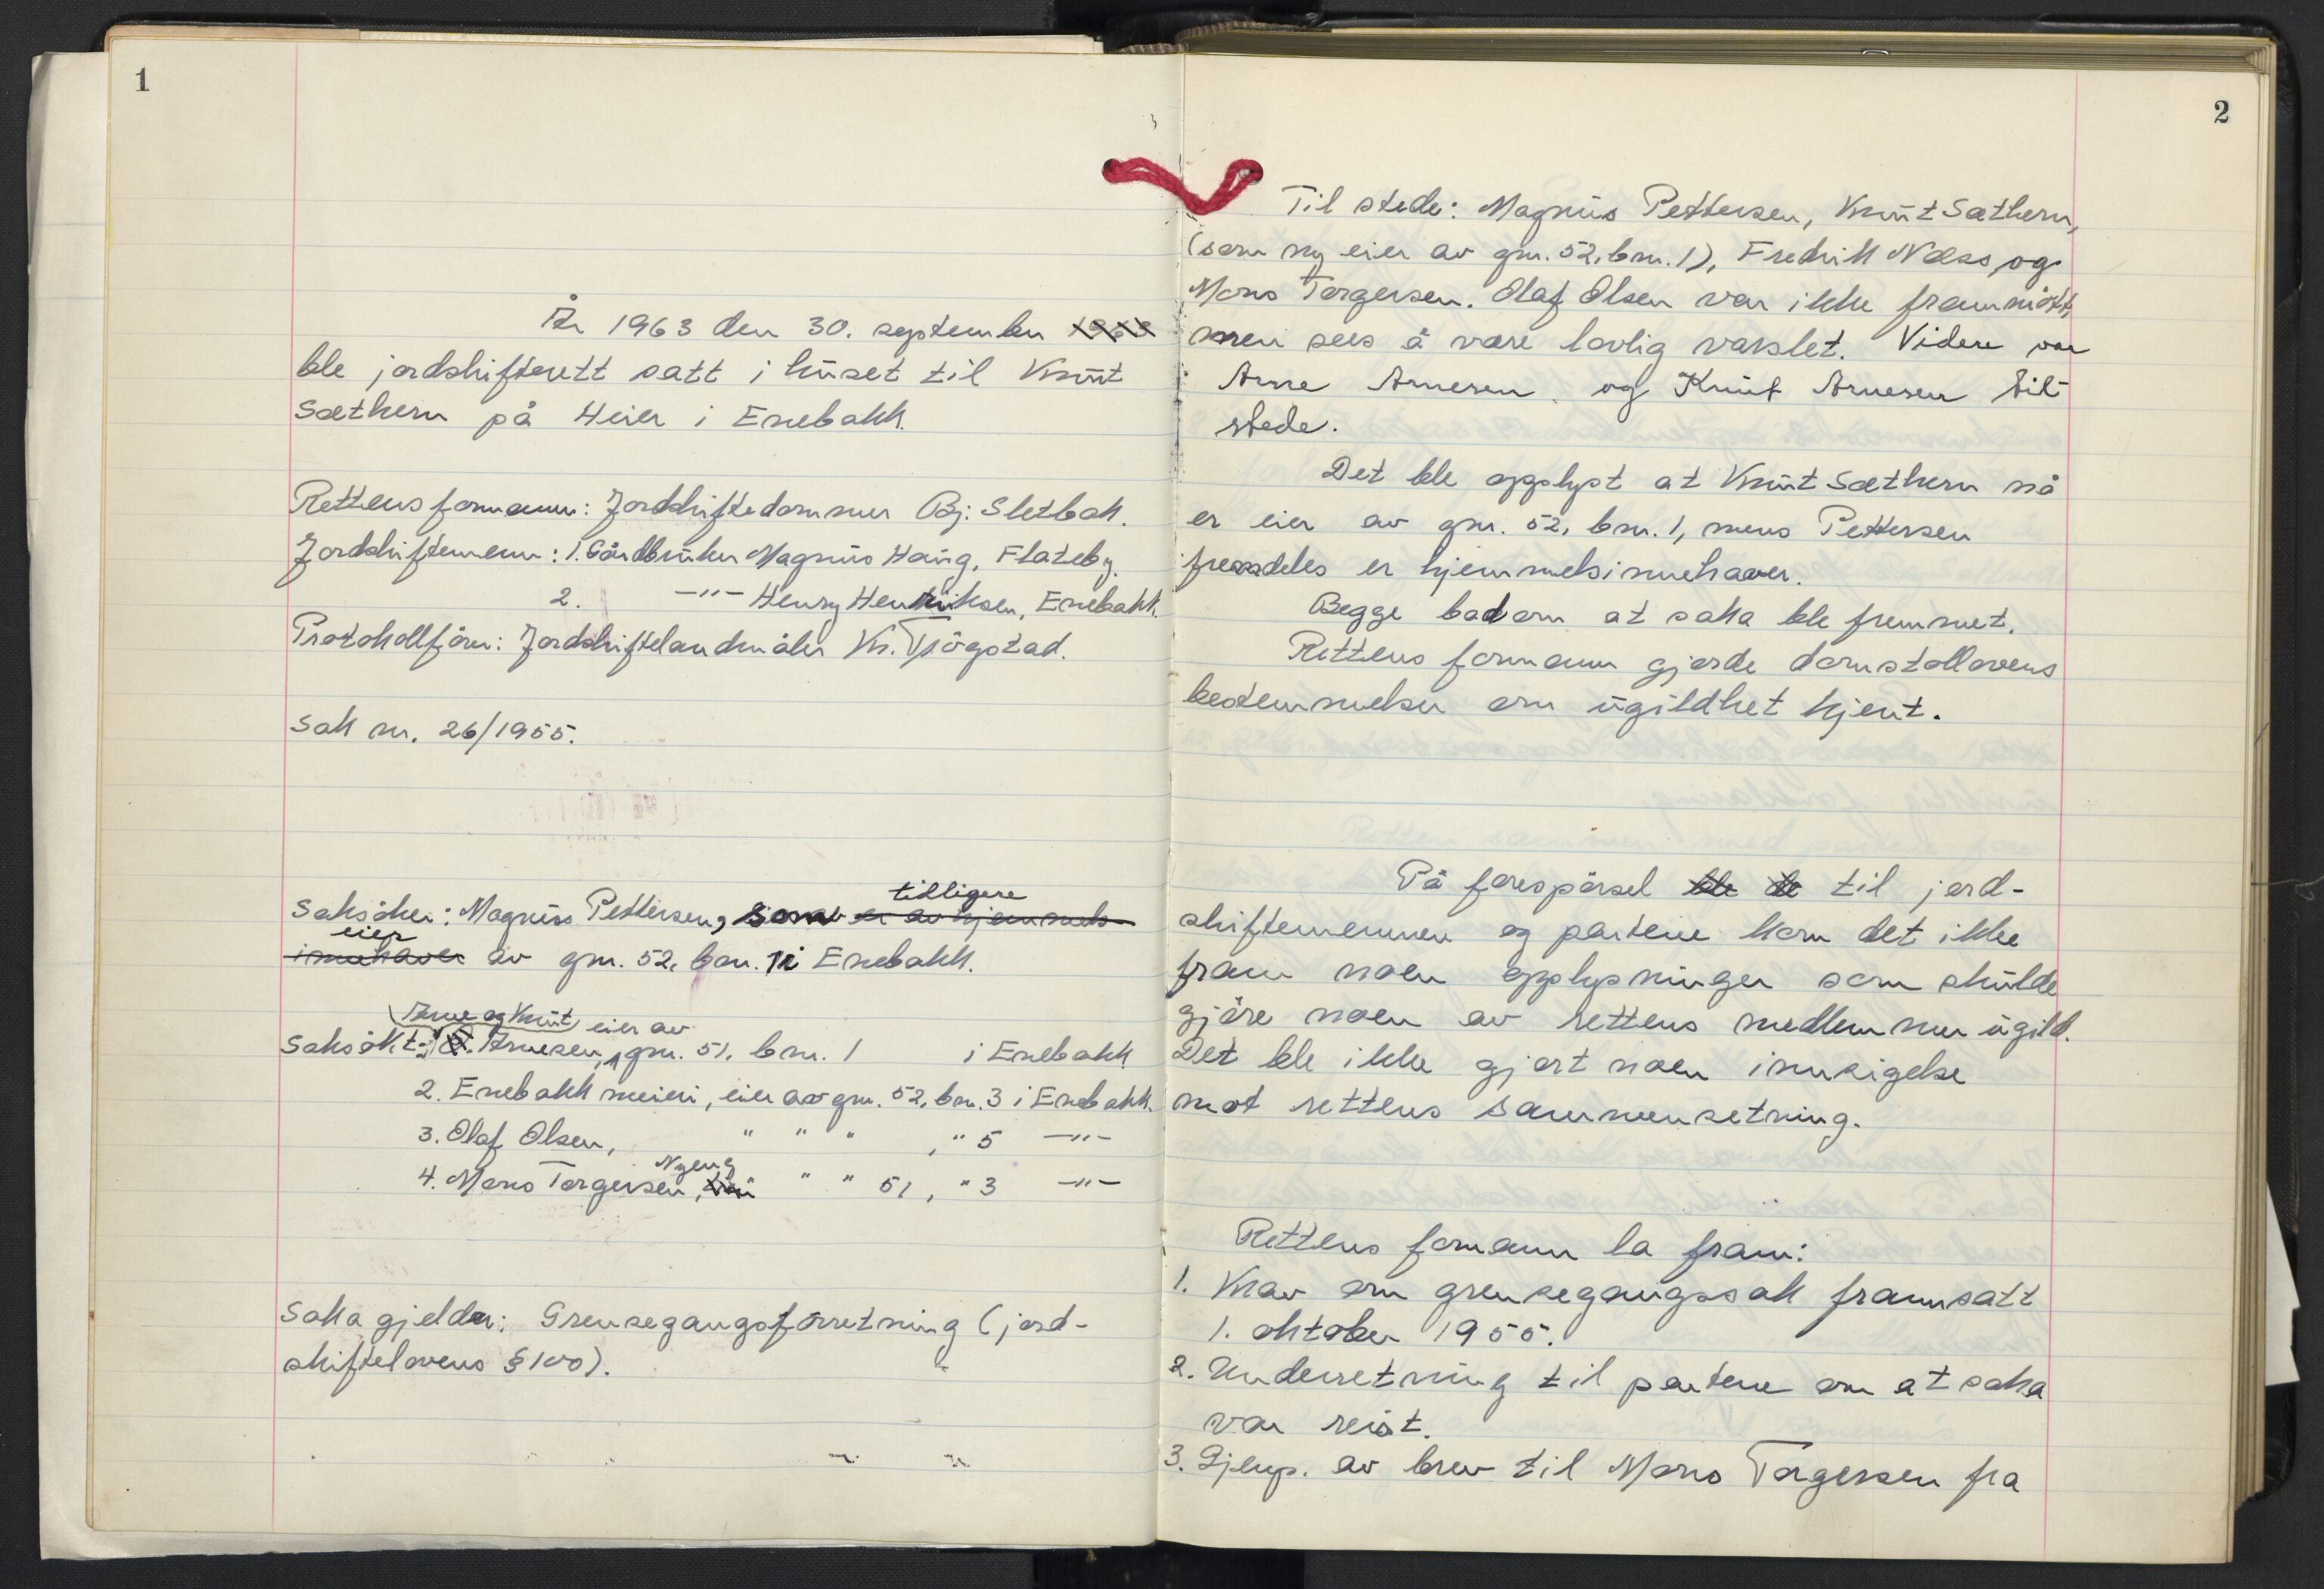 1
År 1963 den 30. september 1963
ble jordskifterett satt i huset til Knut
Sæthern på Heier i Enebakk.
Rettens formann: Jordskiftedommer Bj. Sletbak.
Jordskiftemenn: 1. Gårdbruker Magnus Haug, Flateby.
2. -"- Henry Hendriksen, Enebakk.
Protokollfører: Jordskiftelandmåler Kr. Tjøgstad.
Sak nr. 26/1955.
tidligere
Saksøker: Magnus Pettersen, som er av hjemmels-
eier
innehaver av gnr. 52, bnr. 1 i Enebakk.
Arne og Knut eier av
Saksøkt: Arnesen, gnr. 51, bnr. 1 i Enebakk
2. Enebakk meieri, eier av gnr. 52, bnr. 3 i Enebakk.
3. Olaf Olsen, " " " , " 5 -"-
Nyeng
4. Mons Torgersen, " " 51, " 3 -"-
Saka gjelder: Grensegangsforretning (jord-
skiftelovens § 100).
2
Til stede: Magnus Pettersen, Knut Sæthern,
(som ny eier av gnr. 52, bnr. 1), Fredrik Næss, og
Mons Torgersen. Olaf Olsen var ikke frammøtt,
men sees å være lovlig varslet. Videre var
Arne Arnesen og Knut Arnesen til
stede.
Det ble opplyst at Knut Sæthern nå
er eier av gnr. 52, bnr. 1, mens Pettersen
fremdeles er hjemmelsinnehaver.
Begge bad om at saka ble fremmet.
Rettens formann gjorde domstollovens
bestemmelser om ugildhet kjent.
På forespørsel ble de til jord-
skiftemennene og partene kom det ikke
fram noen opplysninger som skulde
gjøre noen av rettens medlemmer ugild.
Det ble ikke gjort noen innsigelse
mot rettens sammensetning.
Rettens formann la fram:
1. Krav om grensegangssak framsatt
1. oktober 1955.
2. Underretning til partene om at saka
var reist.
3. Gjenp. av brev til Mons Torgersen fra